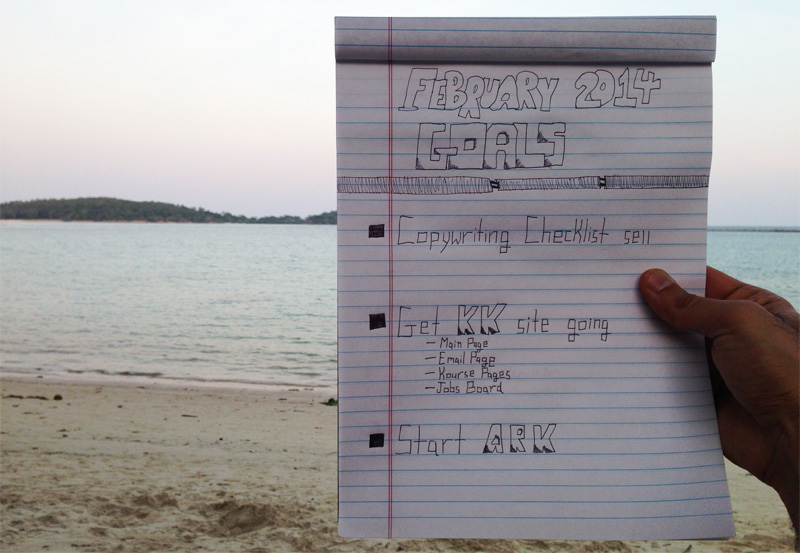 FEBRUARY 2014
GOALS
Copywriting Checklist sell
Get KK site going
- Main Page
- Email Page
- Kourse Pages
- Jobs Board
Start ARK